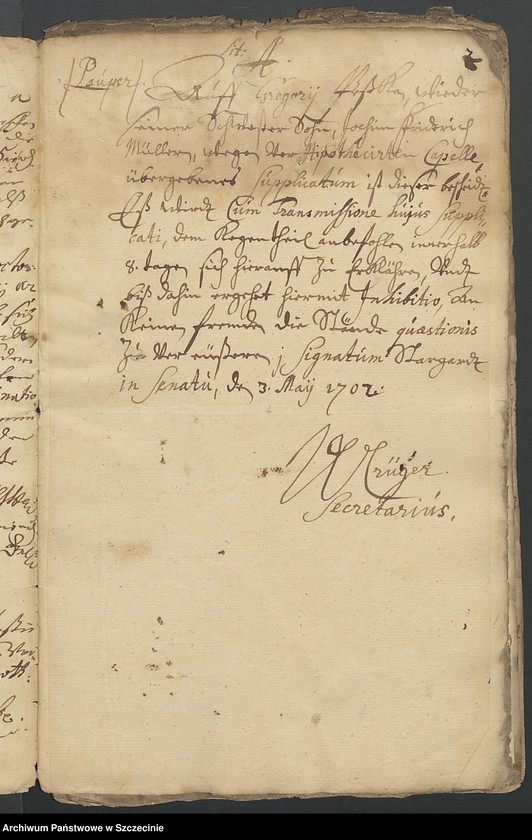 Lit: A.
2
[Pauper]. Auff Gregorij Peßken, wieder
seiner Schwester Sohn, Jochim Friderich
Müllern, wegen der Hipothecirten Capelle,
übergebenes Supplicatum ist dieser bescheidt
Eß wirdt Cum Transmissione hujus Suppli-
cati, dem Gegentheil anbefohlen innerhalb
8. tagen sich hierauff zu erklähren, Undt
biß dahin ergehet hiermit Inhibitio, An
Keinen frembden die Stände quæstionis
zu vereüßeren; Signatum Stargardt
in Senatu, de 3. Maij 1702.
Krüger.
Secretariüs.
Archiwum Państwowe w Szczecinie